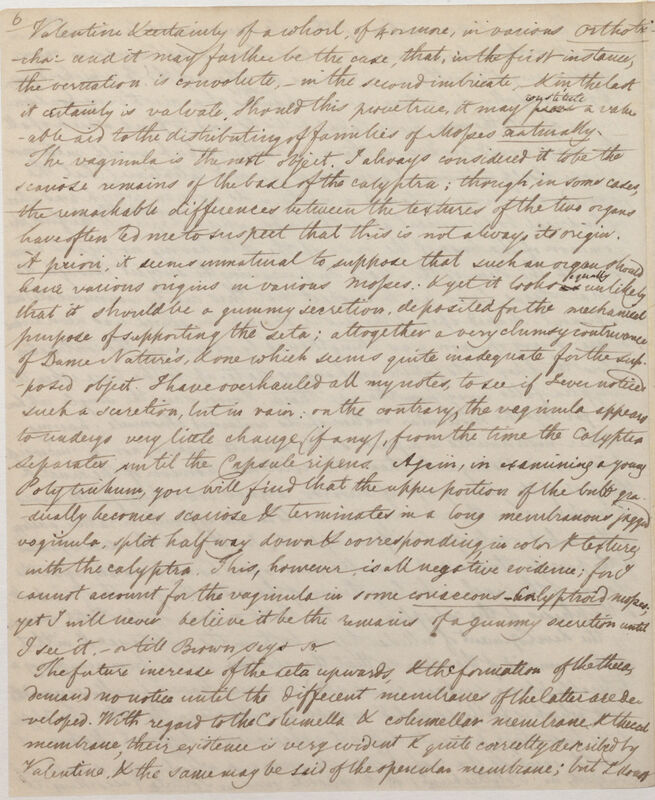 6
Valentine & certainly of a whorl, of 4 or more, in various Orthotri-
-cha: and it may further be the case, that, in the first instance,
the vernation is convolute, — in the second imbricate, & in the last
it certainly is valvate. Should this prove true, it may constitute a valu-
-able aid to the distributing of families of Mosses naturally.
The vaginula is the next object. I always considered it to be the
scariose remains of the base of the calyptra; though, in some cases,
the remarkable differences between the textures of the two organs
have often led me to suspect that this is not always its origin.
A priori, it seems unnatural to suppose that such an organ should
have various origins in various Mosses: & yet it looks equally unlikely
that it should be a gummy secretion, deposited for the mechanical
purpose of supporting the seta; altogether a very clumsy contrivance
of Dame Nature's, & one which seems quite inadequate for the sup-
-posed object. I have overhauled all my notes, to see if I ever noticed
such a secretion, but in vain; on the contrary, the vaginula appears
to undergo very little change (if any), from the time the Calyptra
separates until the Capsule ripens. Again, in examining a young
Polytrichum, you will find that the upper portion of the bulb gra-
dually becomes scariose & terminates in a long membranous jagged
vaginula, split half way down & corresponding in color & texture
with the calyptra. This, however is all negative evidence; for I
cannot account for the vaginula in some coriaceous-Calyptroid mosses,
yet I will never believe it be the remains of a gummy secretion until
I see it, — or till Brown says so
The future increase of the seta upwards, & the formation of the theca,
demand no notice until the different membranes of the latter are de-
veloped. With regard to the Columella & columellar membrane &
membrane, their existence is very evident & quite correctly described by
Valentine, & the same may be said of the opercular membrane; but I